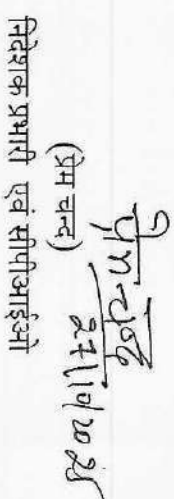 प्रेम चन्द
27/10/2025
(प्रेम चन्द)
निदेशक प्रभारी एवं सीपीआईओ